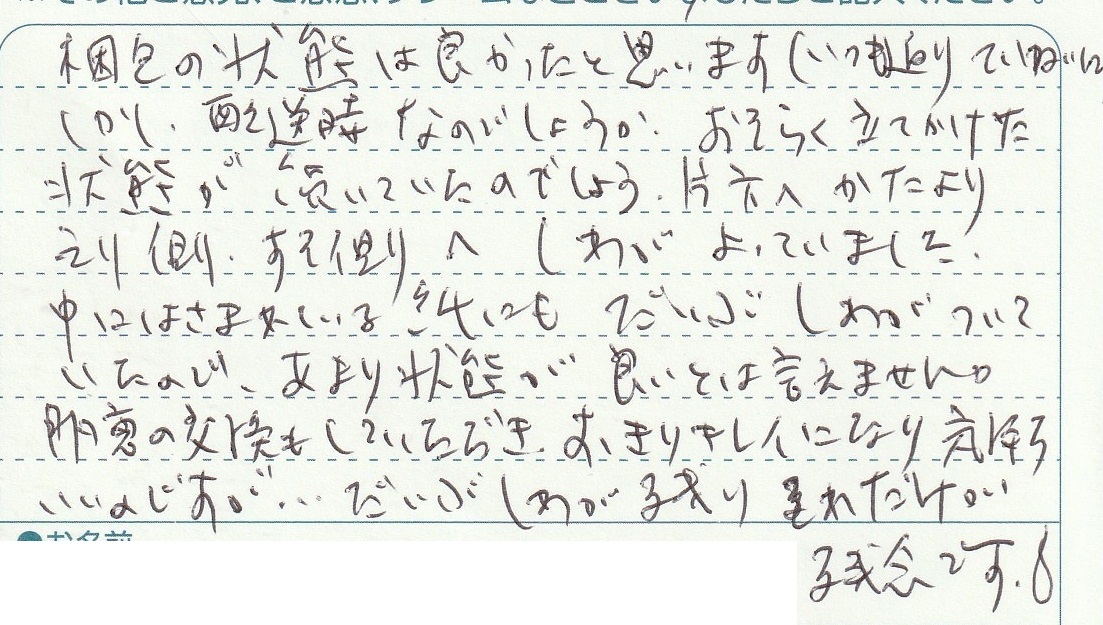 梱包の状態は良かったと思います(いつも通りていねいに
しかし、配送時なのでしょうか、おそらく立てかけた
状態が続いていたのでしょう。片方へかたより
えり側、すそ側へしわがよっていました。
中にはさまっている紙にもだいぶしわがついて
いたので、あまり状態が良いとは言えません。
の交換もしていただき、すっきりキレイになり気持ち
いいのですが… だいぶしわが残り それだけが
残念です。
●お名前